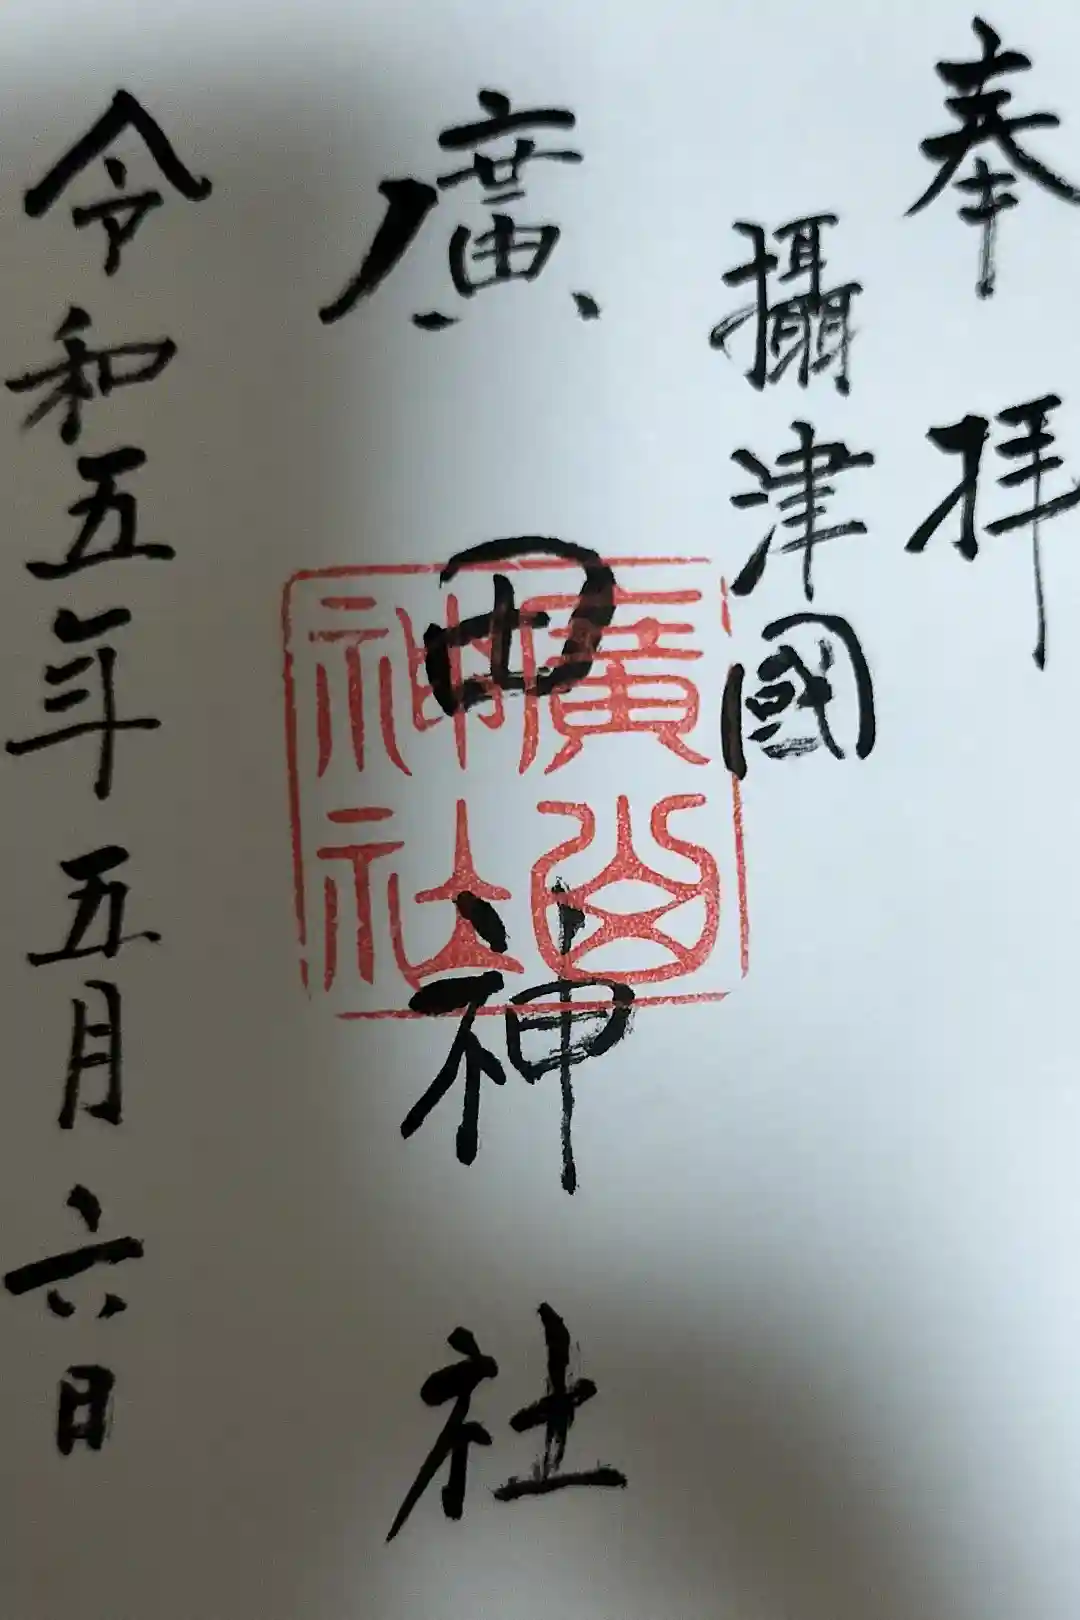 奉拝
攝津國
廣田神社
廣
神社
令和五年五月六日